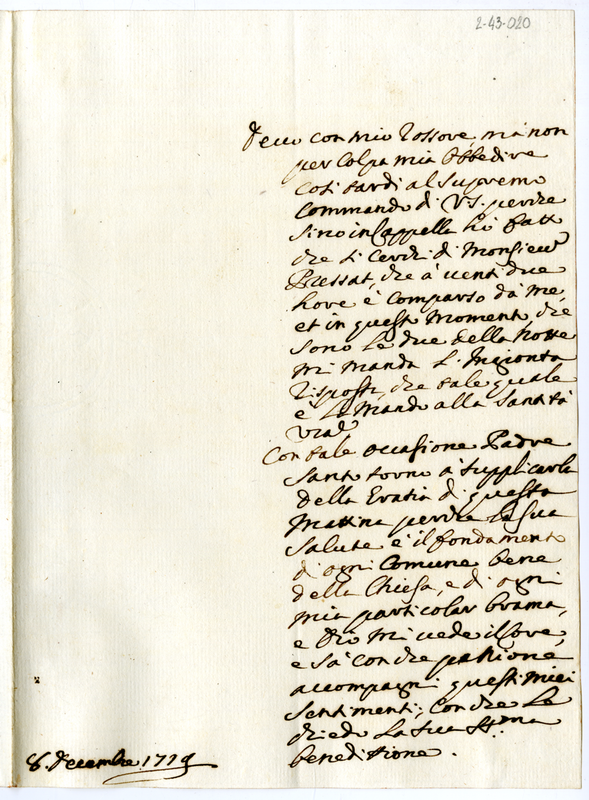 2-43-020
Devo con mio Rossore, mà non
per Colpa mia Obbedire
così tardi al supremo
Commando di V.S. perche
sino in Cappella hò fatto
che si cerchi di Monsieur
Pressat, che à venti due
hore è comparso da me,
et in questo Momento, che
sono le due della Notte
mi manda l'ingionta
Risposta, che tale quale
è la Mando alla Santità
Vra
Con tale occasione Padre
Santo torno à supplicarla
della Gratia di questa
Mattina perche la sua
Salute è il fondamento
di ogni Comune bene
della Chiesa, e di ogni
mia particolar brama,
e Dio mi vede il Core,
e sà con che passione
accompagni questi miei
sentimenti; Con che le
chiedo la sua SS.ma
beneditione.
8. Decembre 1719